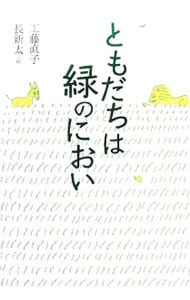 ともだちは
緑のにおい
工藤直子
長新太 絵